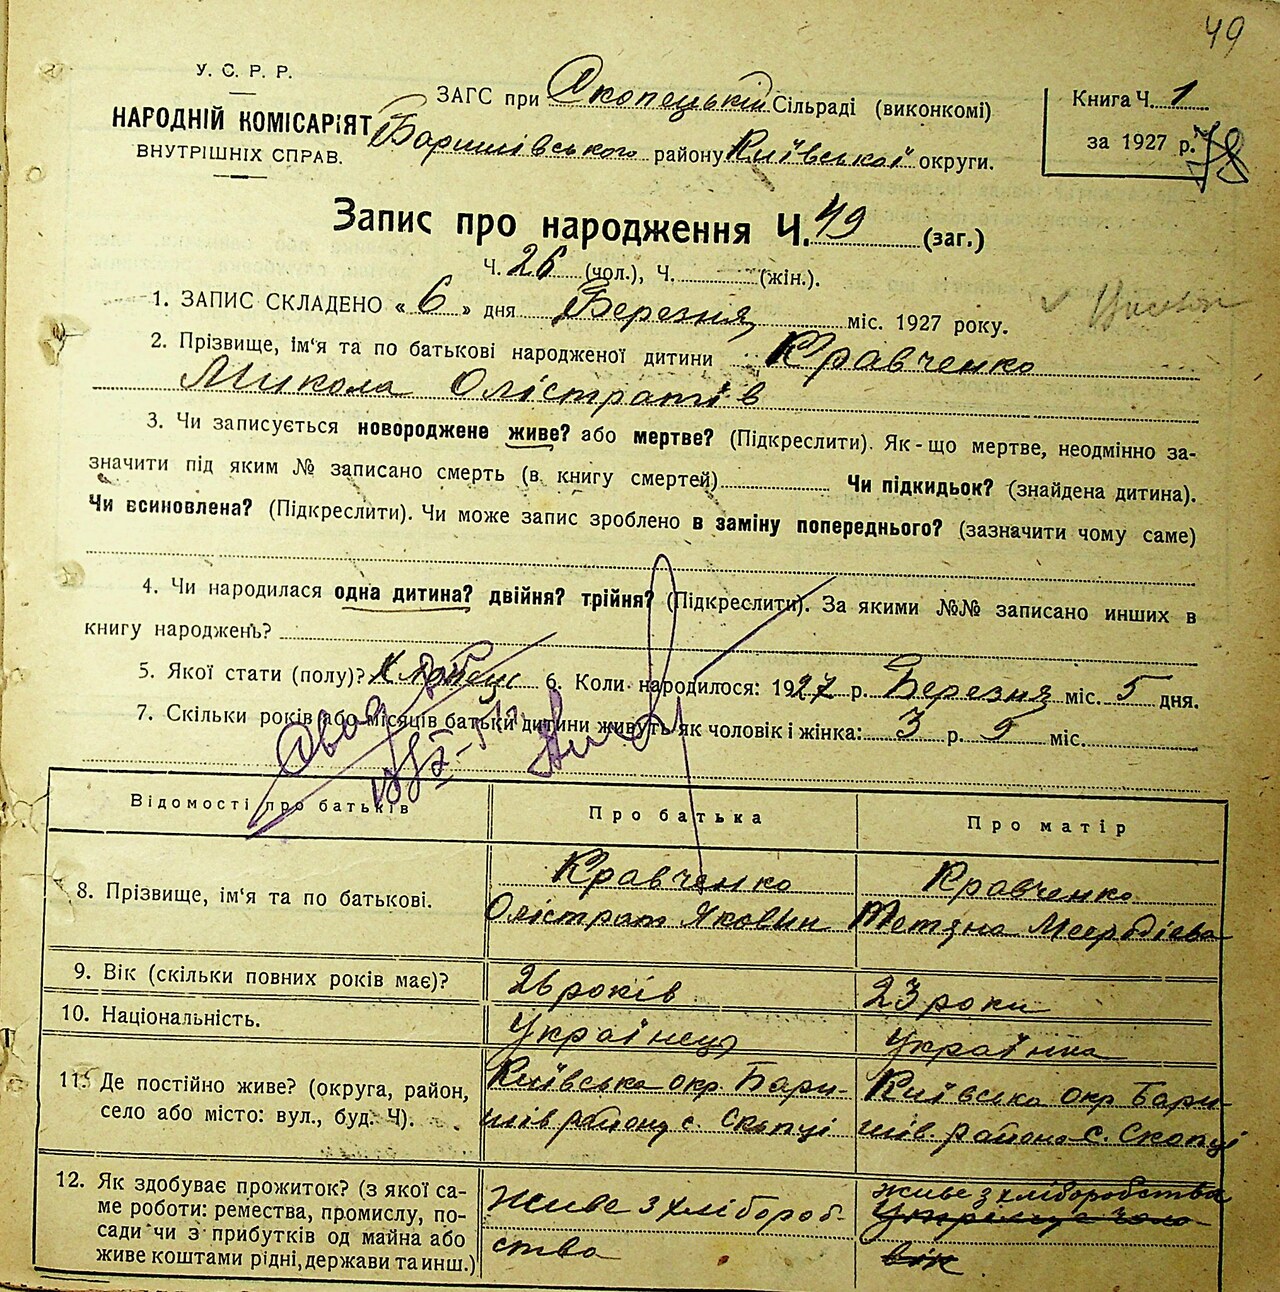 49
У. С. Р. Р.
НАРОДНІЙ КОМІСАРІЯТ
ВНУТРІШНІХ СПРАВ.
ЗАГС при Скопецькій Сільраді (виконкомі)
Баришівського району Київської округи.
Книга Ч. 1
за 1927 р. 78
Запис про народження Ч. 49 (заг.)
Ч. 26 (чол.), Ч. (жін.).
1. ЗАПИС СКЛАДЕНО « 6 » дня Березня міс. 1927 року.
2. Прізвище, ім'я та по батькові народженої дитини Кравченко
Микола Олістратів
3. Чи записується новороджене живе? або мертве? (Підкреслити). Як-що мертве, неодмінно за-
значити під яким № записано смерть (в книгу смертей) Чи підкидьок? (знайдена дитина).
Чи всиновлена? (Підкреслити). Чи може запис зроблено в заміну попереднього? (зазначити чому саме)
4. Чи народилася одна дитина? двійня? трійня? (Підкреслити). За якими №№ записано инших в
книгу народжень?
5. Якої стати (полу)? Хлопець 6. Коли народилося: 1927 р. Березня міс. 5 дня.
7. Скільки років або місяців батьки дитини живуть як чоловік і жінка: 3 р. 5 міс.
Відомості про батьків
Про батька
Про матір
8. Прізвище, ім'я та по батькові.
Кравченко
Олістрат Яковин
Кравченко
Тетяна Меербієва
9. Вік (скільки повних років має)?
26 років
23 роки
10. Національність.
Українець
Українка
11. Де постійно живе? (округа, район,
село або місто: вул., буд. Ч).
Київська окр. Бари-
шів району с. Скопці
Київська окр Бари-
шів. района с. Скопці
12. Як здобуває прожиток? (з якої са-
ме роботи: ремества, промислу, по-
сади чи з прибутків од майна або
живе коштами рідні, держави та инш.)
Живе з хлібороб-
ства
живе з хліборобства